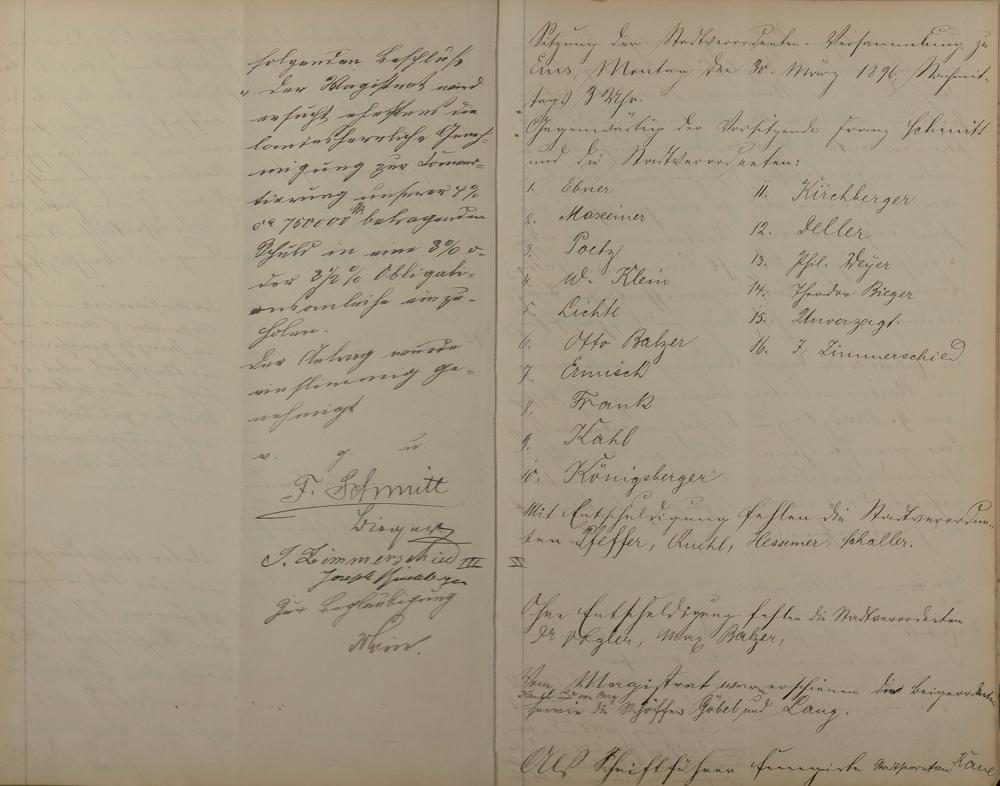 folgenden Beschluß
„Der Magistrat wird
ersucht ehestens die
landesherrliche Geneh-
migung zur Conver-
tierung unserer 4 %
ca 750000 M betragenden
Schuld in eine 3 % o-
der 3 1/2 % Obligati-
onsanleihe einzu-
holen.
Der Antrag wurde
einstimmig ge-
nehmigt
v. g. u.
F. Schmitt
Bieger
J. Zimmerschied III
Joseph
Zur Beglaubigung
Sitzung der Stadtverordneten-Versammlung zu
Ems, Montag den 30. März 1896, Nachmit-
tags 3 Uhr.
Gegenwärtig der Vorsitzende Franz Schmitt
und die Stadtverordneten:
1. Ebner
2. Maxeiner
3. Poetz
4. W. Klein
5. Lichte
6. Otto Balzer
7. Ermisch
8. Frank
9. Kahl
10. Königsberger
11. Kirchberger
12. Deller
13. Phil. Weyer
14. Theodor Bieger
15. Unverzagt.
16. J. Zimmerschied
Mit Entschuldigung fehlen die Stadtverordne-
ten Pfeffer, Ruehl, Hessemer, Schaller.
Ohne Entschuldigung fehlen die Stadtverordneten
Dr Vogler, Max Balzer,
Vom Magistrat waren erschienen die Beigeordneten
und von Berg
sowie die Schöffen Göbel und Lang.
Als Schriftführer fungirte Stadtsecretair Kaul